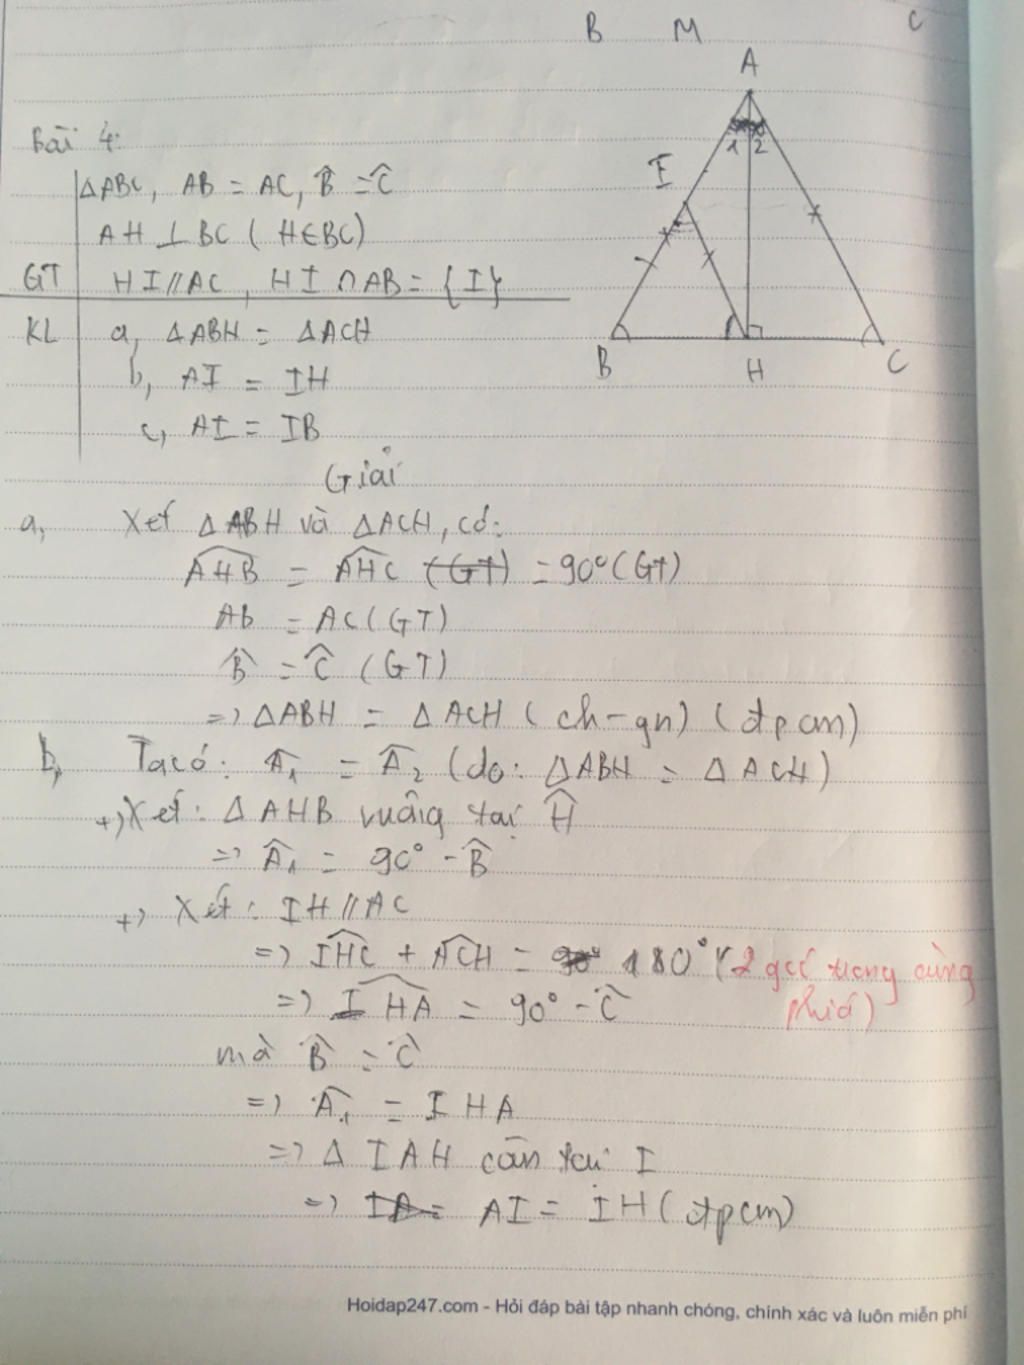 B M C
A
Bài 4:
1 2
I
ΔABC, AB = AC, B̂ = Ĉ
AH ⊥ BC ( H∈BC)
GT HI // AC, HI ∩ AB = {I}
KL a, ΔABH = ΔACH
B H C
b, AI = IH
c, AI = IB
Giải
a, Xét ΔABH và ΔACH, có:
AHB = AHC (GT) = 90° (GT)
Ab = AC (GT)
B̂ = Ĉ (GT)
=> ΔABH = ΔACH ( ch-gn) (đpcm)
b, Ta có: Â₁ = Â₂ (do: ΔABH = ΔACH)
+) Xét: ΔAHB vuông tại Ĥ
=> Â₁ = 90° - B̂
+) Xét: IH // AC
=> IHC + ACH = 90° 180° (2 góc trong cùng
phía)
=> IHA = 90° - Ĉ
mà B̂ = Ĉ
=> Â₁ = IHA
=> Δ IAH cân tại I
=> IA = AI = IH (đpcm)
Hoidap247.com - Hỏi đáp bài tập nhanh chóng, chính xác và luôn miễn phí